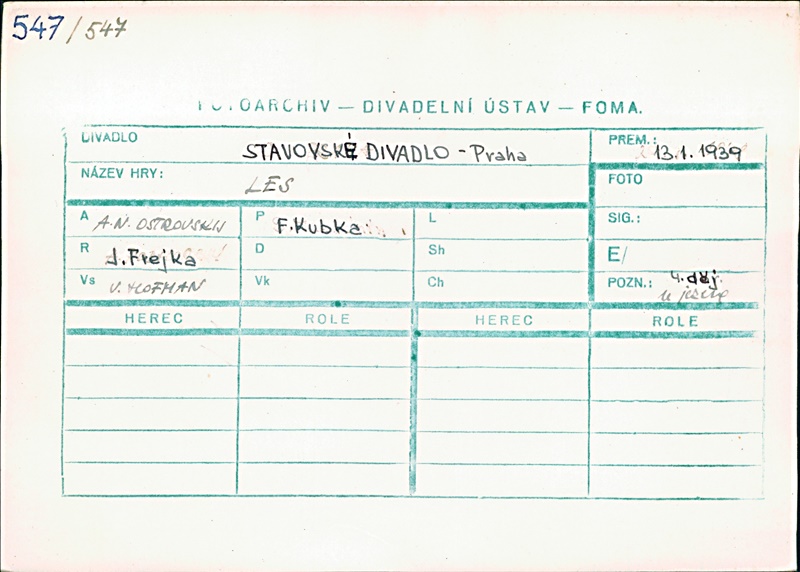 547 / 547
FOTOARCHIV — DIVADELNÍ ÚSTAV — FOMA.
DIVADLO STAVOVSKÉ DIVADLO - Praha
PREM.: 13.1.1939
NÁZEV HRY: LES
FOTO
A A.N. OSTROVSKIJ P F. Kubka L
SIG.:
R J. Frejka D Sh
E/
Vs V. HOFMAN Vk Ch
POZN.: 4. děj.
HEREC ROLE HEREC ROLE